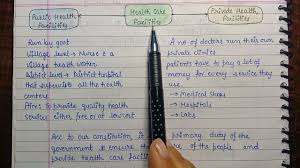 Public Health Facilities
Health Care Facilities
Private Health Facilities
Run by govt
Village level → Nurse & a
village health worker
District level → District hospital
that supervises all the health
centers
Aim: To provide quality health
services either free or at lowest
A no. of doctors run their own
private clinics
patients have to pay a lot of
money for every service they
use
→ Medical Shops
→ Hospitals
→ Labs
Acc to our constitution, it is primary duty of the
to ensure the of the people and
provide health care facilities